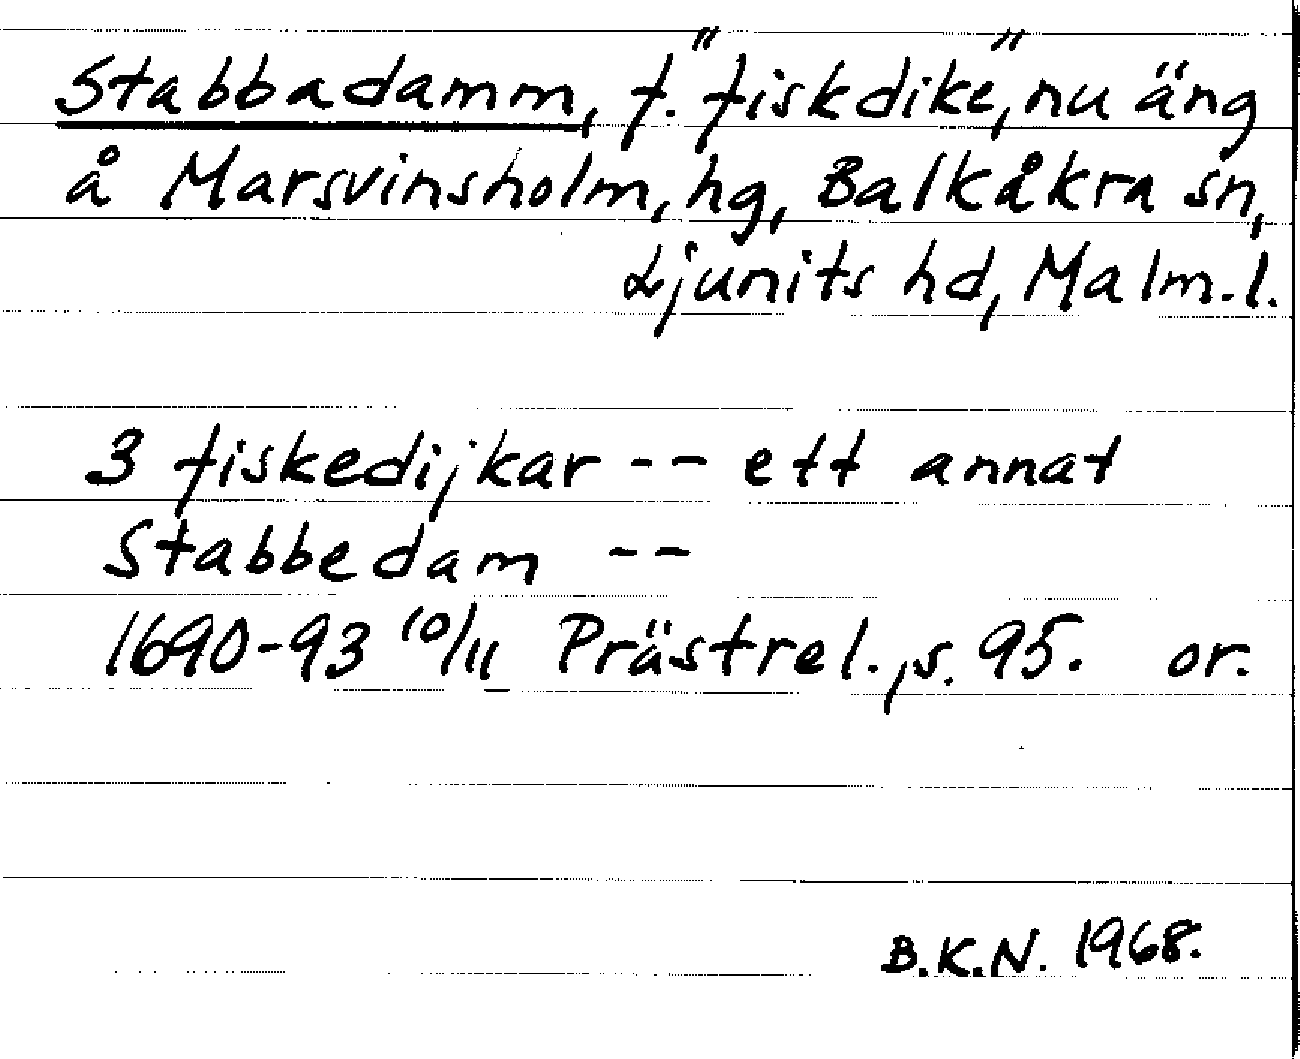 Stabbadamm, f. "fiskdike", nu äng
å Marsvinsholm, hg, Balkåkra sn,
Ljunits hd, Malm.l.
3 fiskedijkar -- ett annat
Stabbedam --
1690-93 10/11 Prästrel., s. 95. or.
B.K.N. 1968.